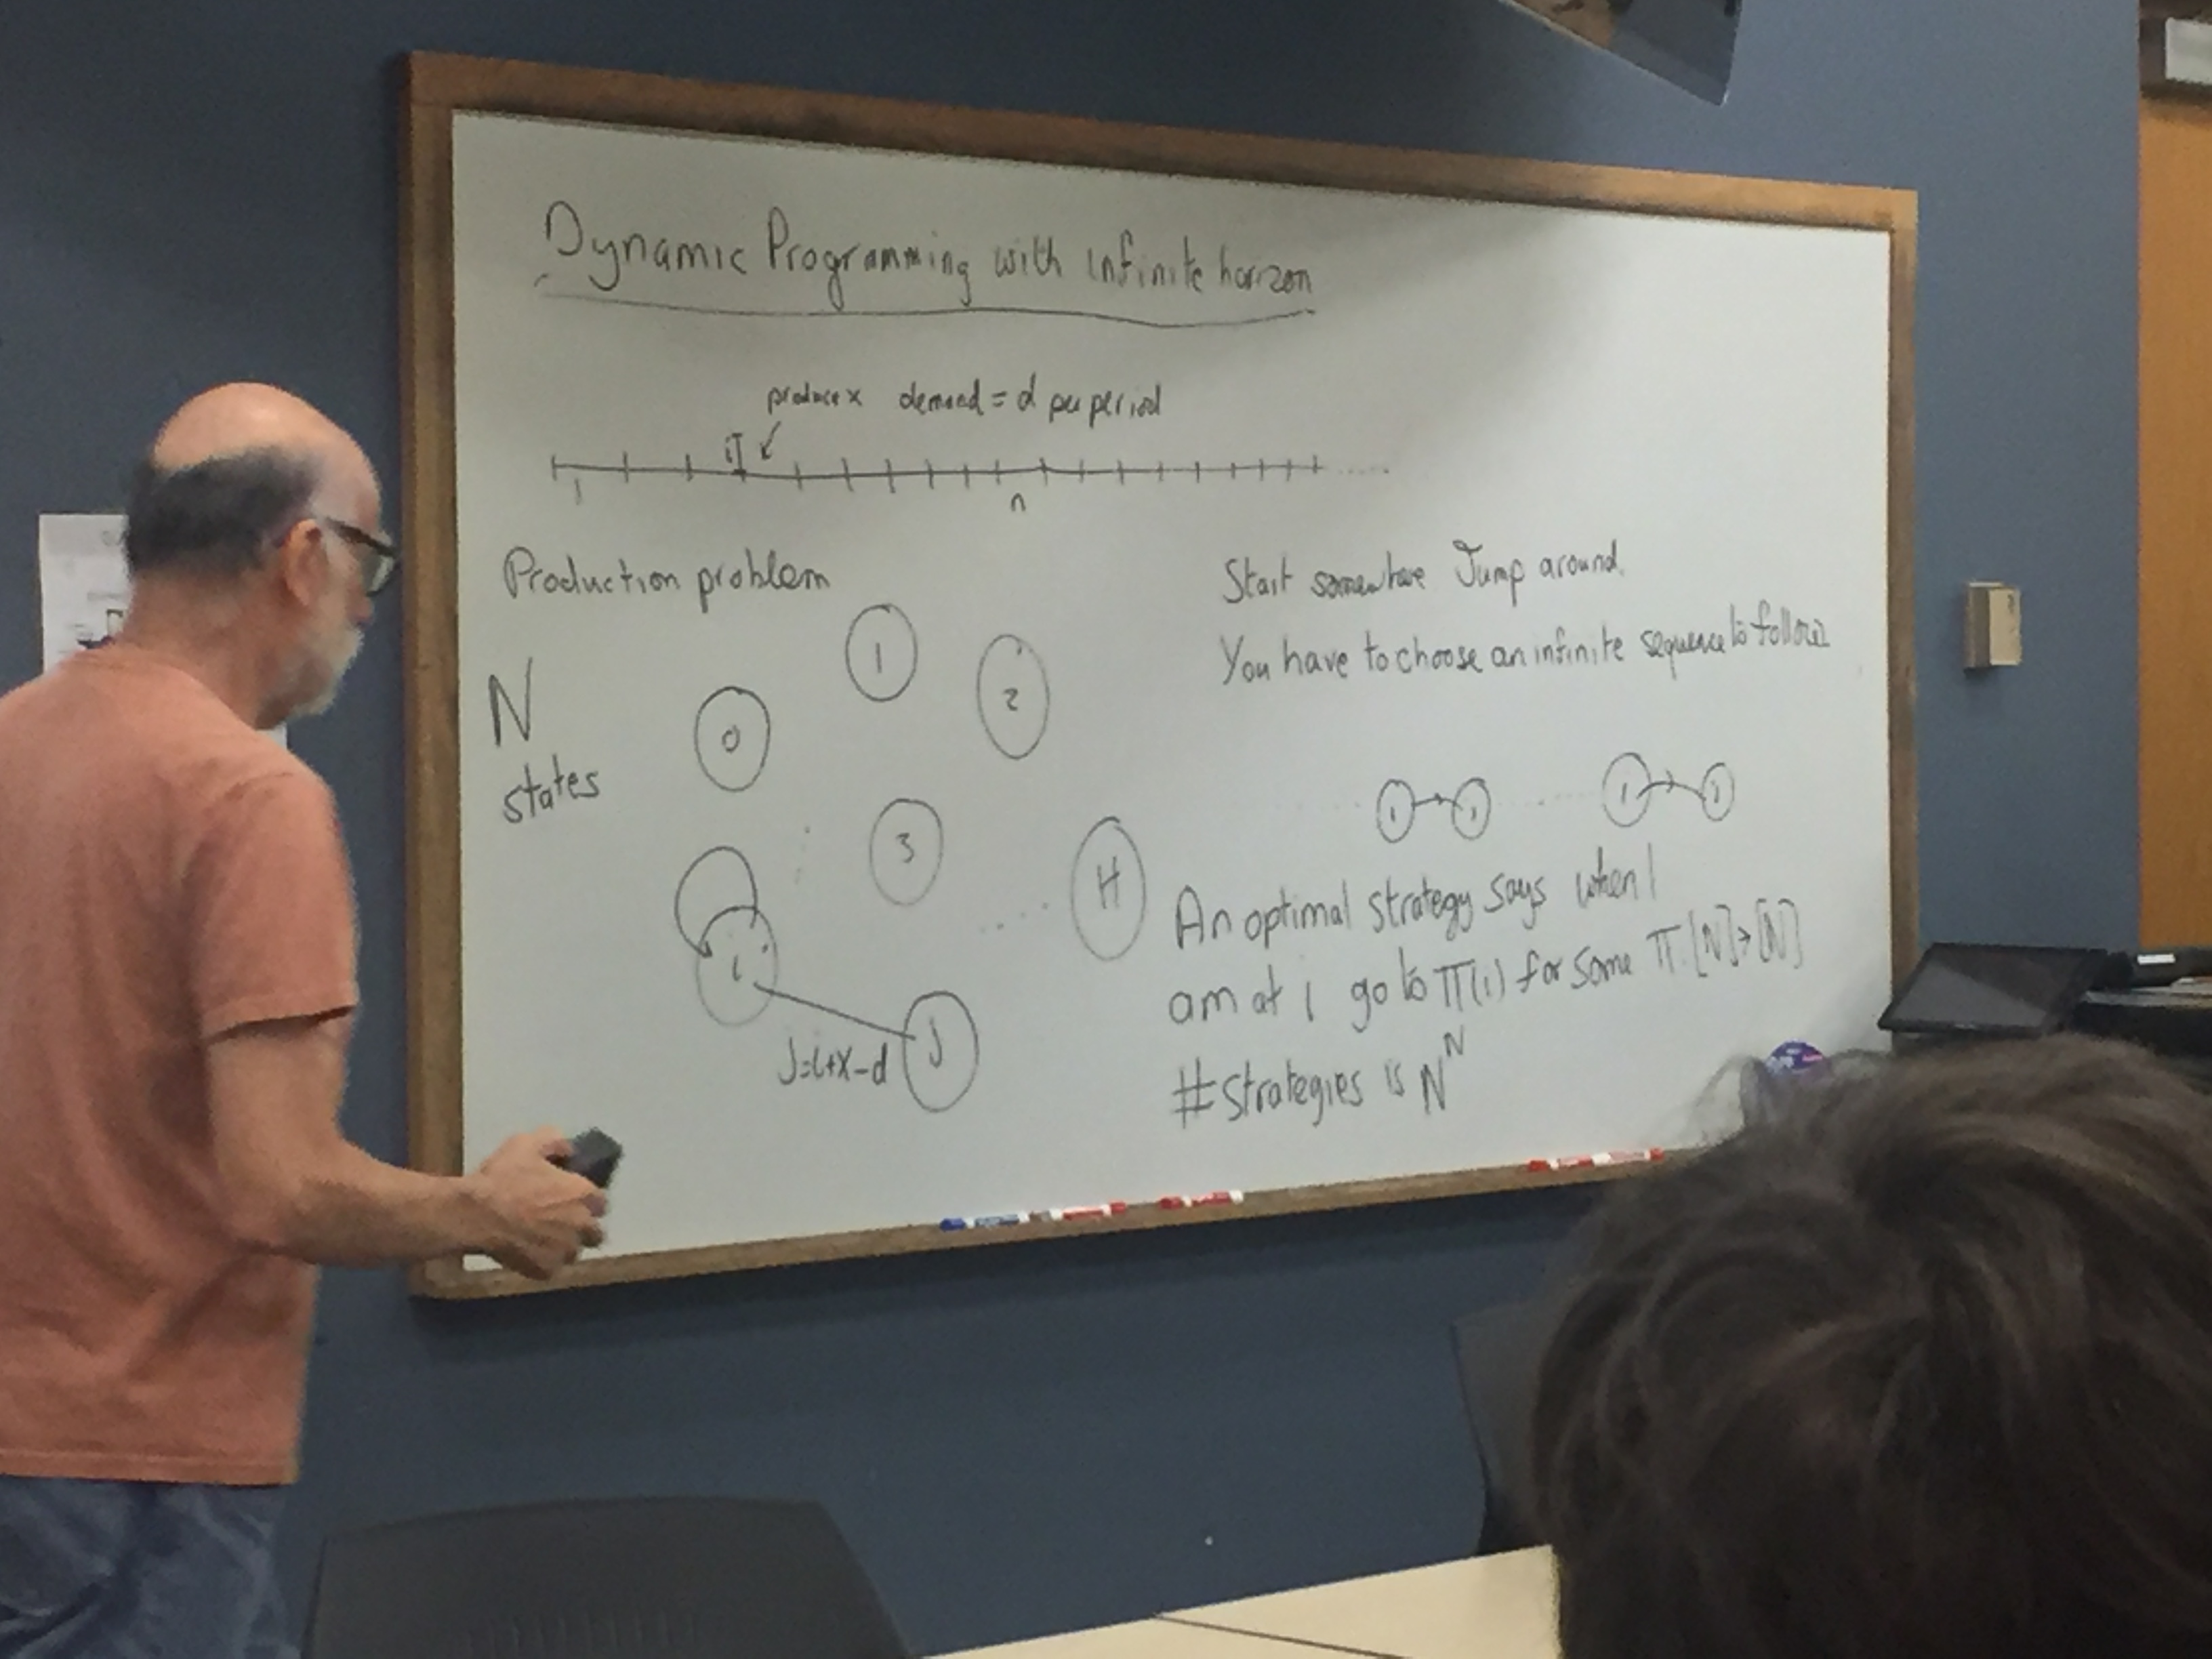 Dynamic Programming with infinite horizon
produce x demand = d per period
i
1
n
Production problem
Start somewhere Jump around.
You have to choose an infinite sequence to follow
N
states
0
1
2
3
H
i
j
J=i+x-d
i j
i j
An optimal strategy says when I
am at i go to π(i) for some π:[N]→[N]
#strategies is N^N